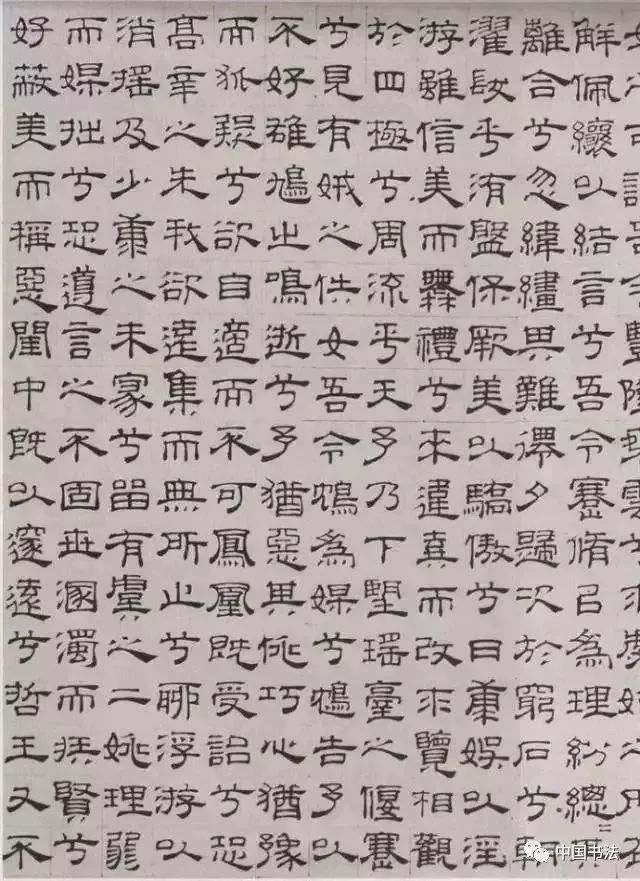 解佩纕以結言兮吾令蹇脩以為理紛總
離合兮忽緯繣其難遷夕歸次於窮石兮朝
濯髮乎洧盤保厥美以驕傲兮日康娛以淫
游雖信美而無禮兮來違棄而改求覽相觀
於四極兮周流乎天予乃下望瑤臺之偃蹇
兮見有娀之佚女吾令鴆為媒兮鴆告予以
不好雄鳩之鳴逝兮予猶惡其佻巧心猶豫
而狐疑兮欲自適而不可鳳凰既受詒兮恐
高辛之先我欲遠集而無所止兮聊浮游以
消搖及少康之未家兮留有虞之二姚理弱
而媒拙兮恐導言之不固世溷濁而嫉賢兮
好蔽美而稱惡閨中既以邃遠兮哲王又不
中国书法